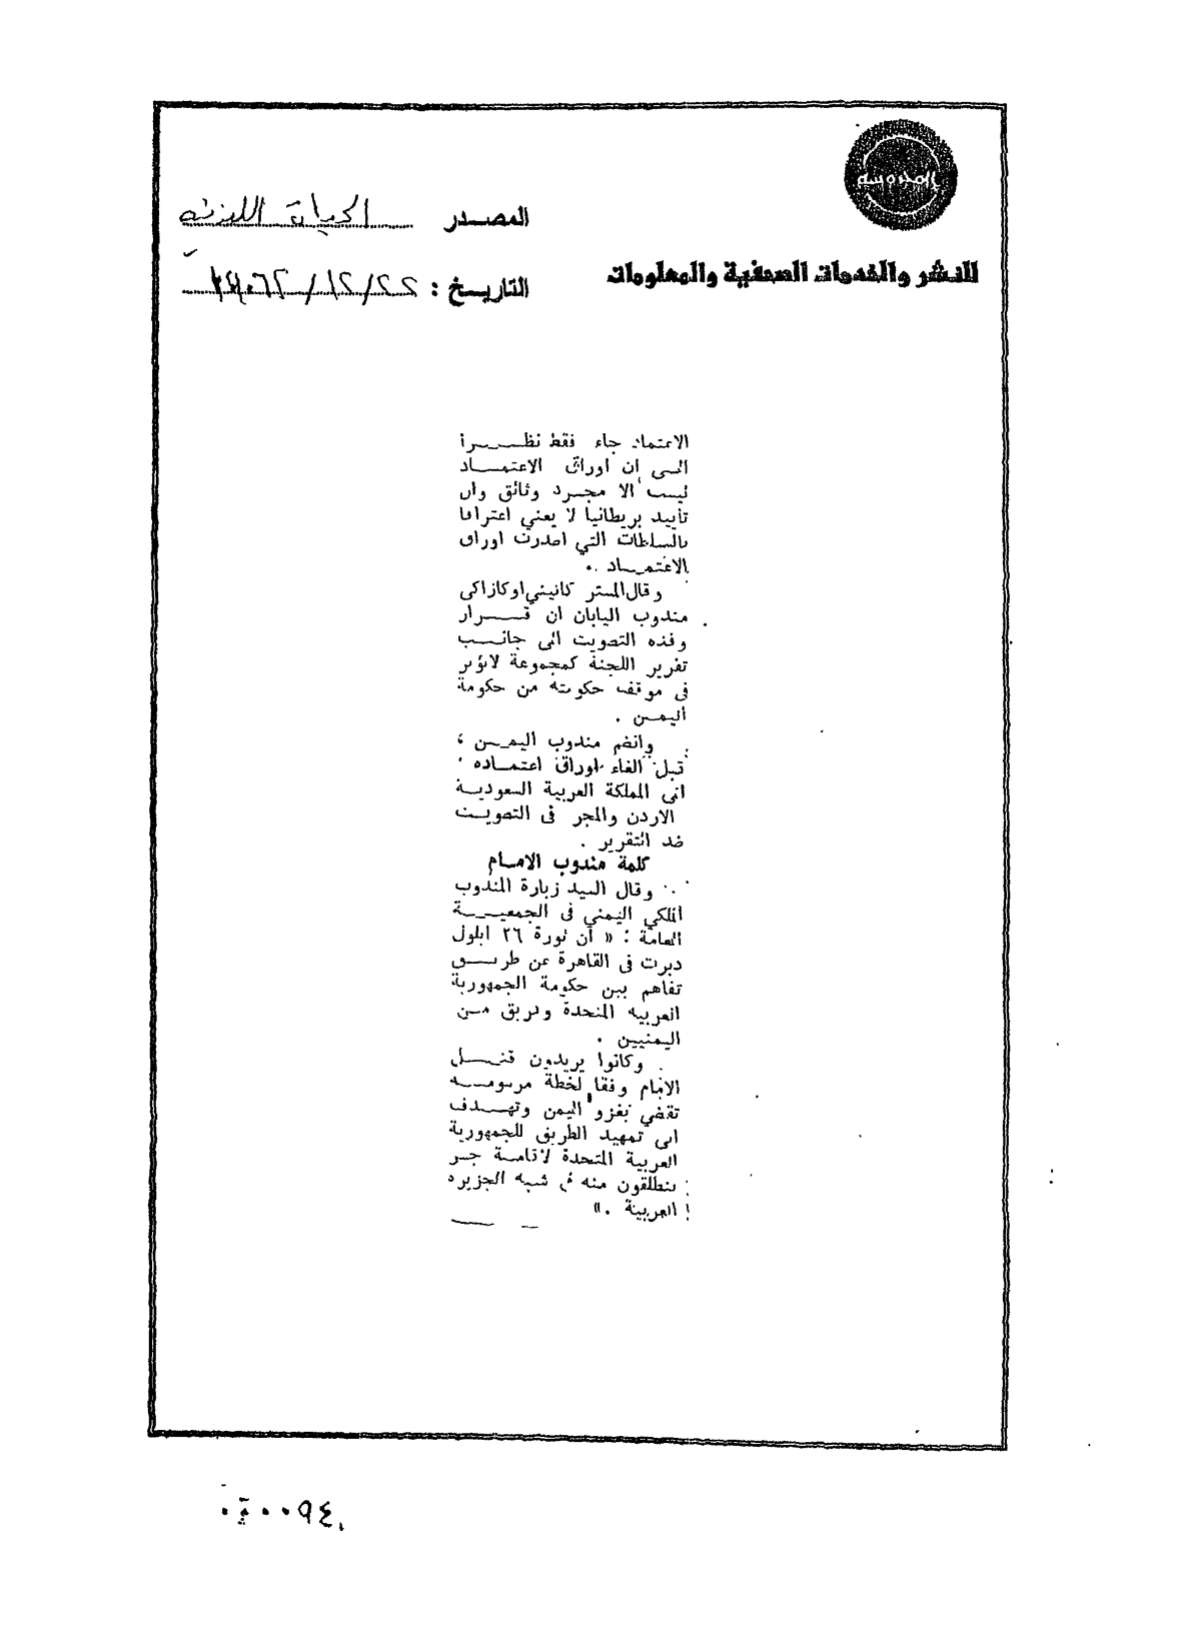 المحروسة
للنشر والخدمات الصحفية والمعلومات
المصدر الحياة اللبنانية
التاريخ : ٢٢/١٢/
الاعتماد جاء فقط نظرا
الى ان اوراق الاعتماد
ليست الا مجرد وثائق وان
تأييد بريطانيا لا يعني اعترافا
بالسلطات التي اصدرت اوراق
الاعتماد .
وقال المستر كانيني اوكازاكى
مندوب اليابان ان قرار
وفده التصويت الى جانب
تقرير اللجنة كمجموعة لايؤثر
في موقف حكومته من حكومة
اليمن .
وانضم مندوب اليمن ،
قبل الغاء اوراق اعتماده
الى المملكة العربية السعودية
الاردن والمجر في التصويت
ضد التقرير .
كلمة مندوب الامام
وقال السيد زبارة المندوب
الملكي اليمني في الجمعية
العامة : « ان ثورة ٢٦ ايلول
دبرت في القاهرة عن طريق
تفاهم بين حكومة الجمهورية
العربية المتحدة وفريق من
اليمنيين .
وكانوا يريدون قتل
الامام وفقا لخطة مرسومة
تقضي بغزو اليمن وتهدف
الى تمهيد الطريق للجمهورية
العربية المتحدة لاقامة جسر
ينطلقون منه في شبه الجزيرة
العربية . »